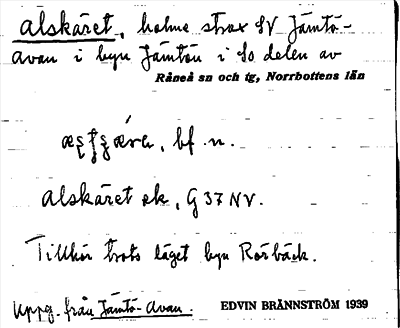 Alskäret, holme strax SV Jämtö-
Avan i byn Jämtön i So delen av
Råneå sn och tg, Norrbottens län
bf. n.
Alskäret ek, G 37 NV.
Tillhör trots läget byn Rörbäck.
Uppg. från Jämtö-Avan. EDVIN BRÄNNSTRÖM 1939